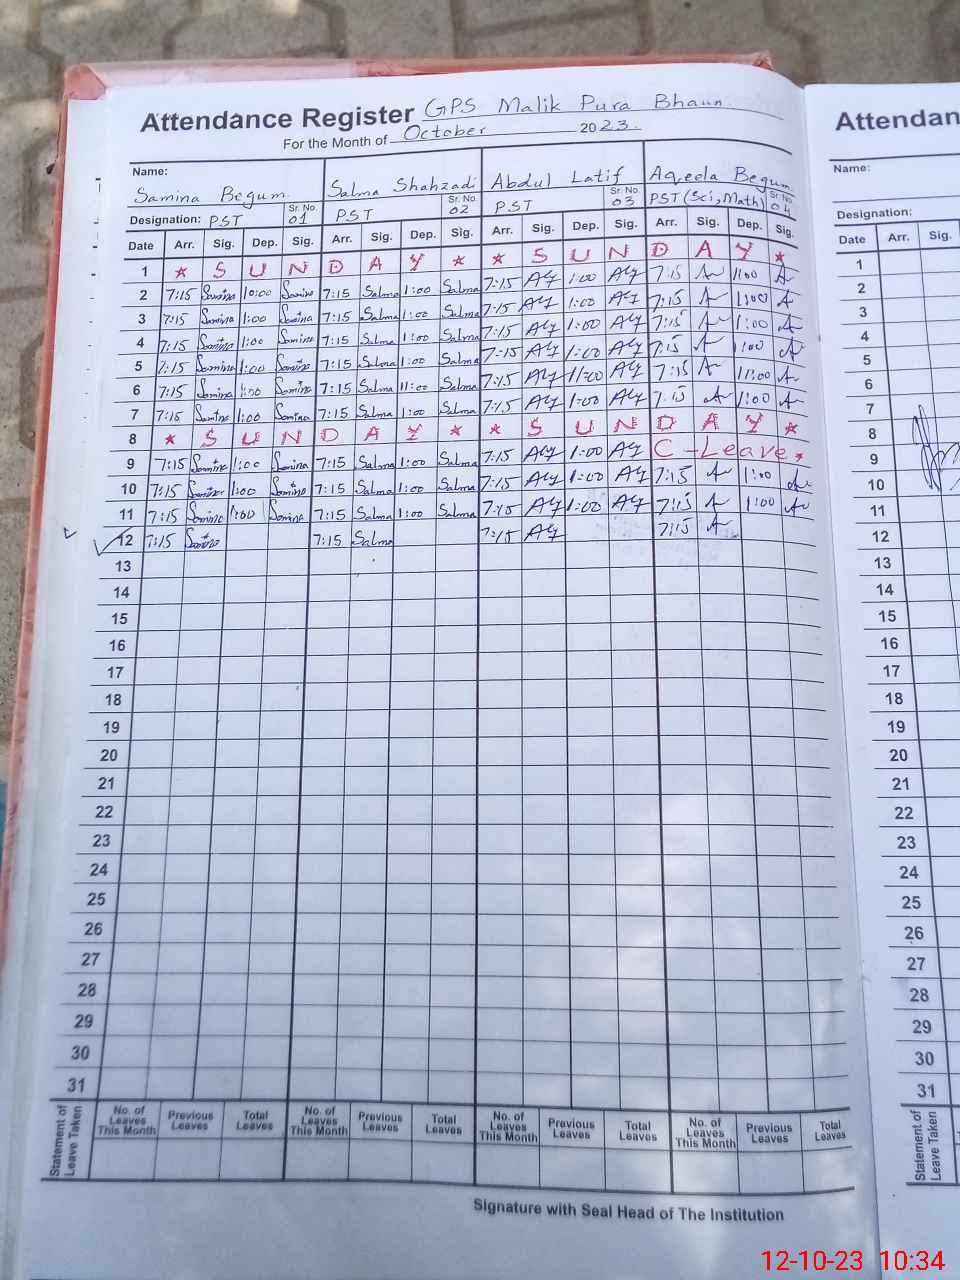 Attendance Register GPS Malik Pura Bhaun
For the Month of October 2023.
Name: Samina Begum Salma Shahzadi Abdul Latif Aqeela Begum
Designation: PST Sr. No. 01 PST Sr. No. 02 PST Sr. No. 03 PST (Sci, Math) Sr. No. 04
Date Arr. Sig. Dep. Sig. Arr. Sig. Dep. Sig. Arr. Sig. Dep. Sig. Arr. Sig. Dep. Sig.
1 * S U N D A Y * * S U N D A Y *
2 7:15 Samina 10:00 Samina 7:15 Salma 1:00 Salma 7:15 1:00 7:15 1:00
3 7:15 Samina 1:00 Samina 7:15 Salma 1:00 Salma 7:15 1:00 7:15 1:00
4 7:15 Samina 1:00 Samina 7:15 Salma 1:00 Salma 7:15 1:00 7:15 1:00
5 7:15 Samina 1:00 Samina 7:15 Salma 1:00 Salma 7:15 1:00 7:15 1:00
6 7:15 Samina 1:00 Samina 7:15 Salma 11:00 Salma 7:15 11:00 7:15 11:00
7 7:15 Samina 1:00 Samina 7:15 Salma 1:00 Salma 7:15 1:00 7:15 1:00
8 * S U N D A Y * * S U N D A Y *
9 7:15 Samina 1:00 Samina 7:15 Salma 1:00 Salma 7:15 1:00 C-Leave *
10 7:15 Samina 1:00 Samina 7:15 Salma 1:00 Salma 7:15 1:00 7:15 1:00
11 7:15 Samina 1:00 Samina 7:15 Salma 1:00 Salma 7:15 1:00 7:15 1:00
12 7:15 Samina 7:15 Salma 7:15 7:15
13
14
15
16
17
18
19
20
21
22
23
24
25
26
27
28
29
30
31
Statement of Leave Taken
No. of Leaves This Month Previous Leaves Total Leaves No. of Leaves This Month Previous Leaves Total Leaves No. of Leaves This Month Previous Leaves Total Leaves No. of Leaves This Month Previous Leaves Total Leaves
Signature with Seal Head of The Institution
Attendan
Name:
Designation:
Date Arr. Sig.
1
2
3
4
5
6
7
8
9
10
11
12
13
14
15
16
17
18
19
20
21
22
23
24
25
26
27
28
29
30
31
Statement of Leave Taken
12-10-23 10:34